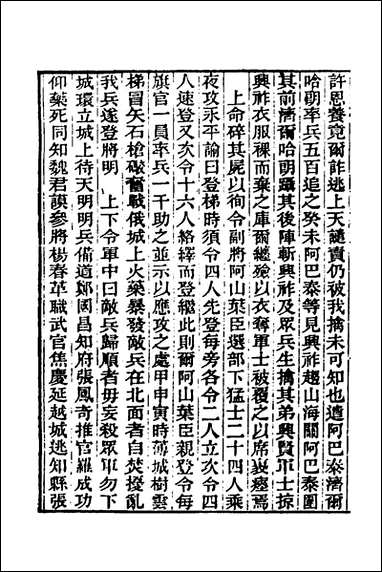 許恩養竟爾詐逃上天譴責仍被我擒未可知也遣阿巴泰濟爾
哈朗率兵五百追之癸未阿巴泰等見興祚趨山海關阿巴泰圍
其前濟爾哈朗躡其後陣斬興祚及眾兵生擒其弟興賢軍士掠
興祚衣服裸而棄之庫爾纏殮以衣奪軍士被覆之以席裹瘞焉
上命碎其屍以徇令副將阿山葉臣選部下猛士二十四人乘
夜攻永平諭曰登梯時須令四人先登每旁各令二人立次令四
人速登又次令十六人絡繹而登繼此則爾阿山葉臣親登令每
旗官一員率兵一千助之並示以應攻之處甲申寅時薄城樹雲
梯冒矢石槍礮奮戰俄城上火藥暴發敵兵在北面者自焚擾亂
我兵遂登將明　上下令軍中曰敵兵歸順者毋妄殺眾軍勿下
城環立城上待天明明兵備道鄭國昌知府張鳳奇推官羅成功
仰藥死同知魏君謨參將楊春革職武官焦慶延越城逃知縣張